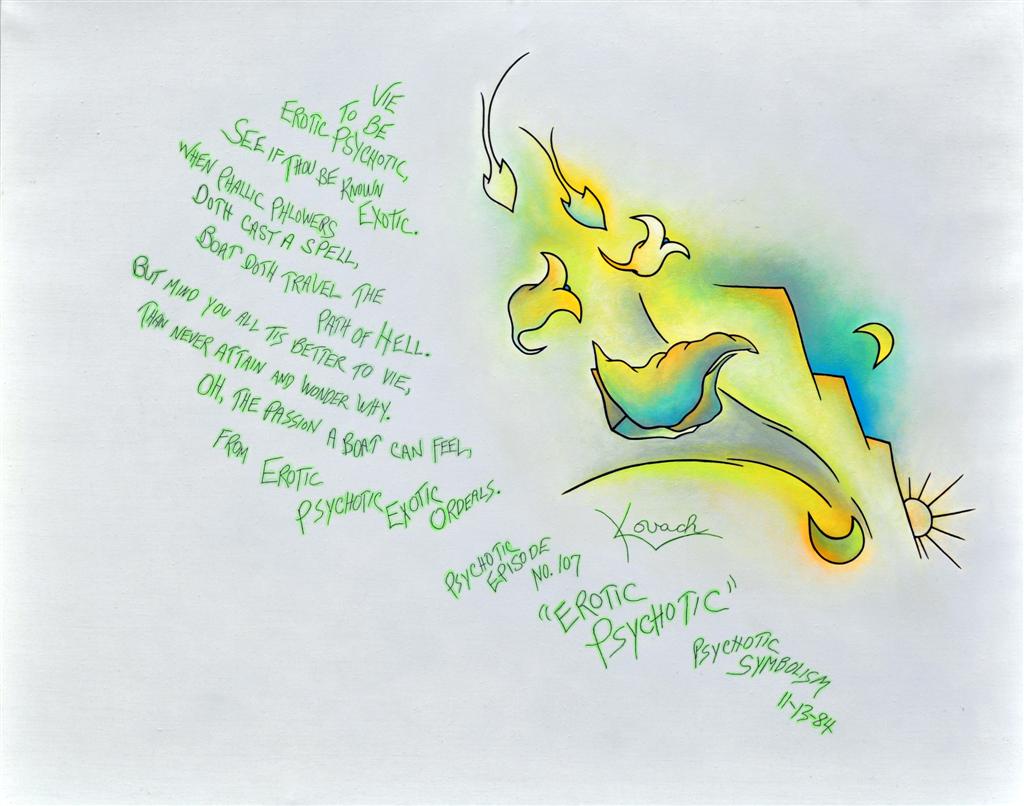 VIE
TO BE
EROTIC PSYCHOTIC,
SEE IF THOU BE KNOWN
EXOTIC.
WHEN PHALLIC PHLOWERS
DOTH CAST A SPELL,
BOAT DOTH TRAVEL THE
PATH OF HELL.
BUT MIND YOU ALL TIS BETTER TO VIE,
THAN NEVER ATTAIN AND WONDER WHY.
OH, THE PASSION A BOAT CAN FEEL,
FROM EROTIC
PSYCHOTIC EXOTIC
ORDEALS.
Kovach
PSYCHOTIC
EPISODE
NO. 107
"EROTIC
PSYCHOTIC"
PSYCHOTIC
SYMBOLISM
11-13-84